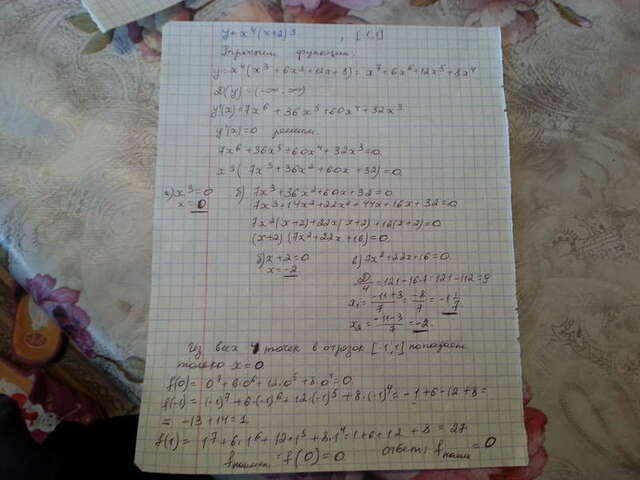 y = x⁴(x+2)3 , [-1,1]
функции:
y = x⁴(x³ + 6x² + 12x + 8) = x⁷ + 6x⁶ + 12x⁵ + 8x⁴
D(y) = (-∞, ∞)
y'(x) = 7x⁶ + 36x⁵ + 60x⁴ + 32x³
y'(x) = 0 решим
7x⁶ + 36x⁵ + 60x⁴ + 32x³ = 0
x³(7x³ + 36x² + 60x + 32) = 0
а) x³ = 0 б) 7x³ + 36x² + 60x + 32 = 0
x = 0 7x³ + 14x² + 22x² + 44x + 16x + 32 = 0
7x²(x+2) + 22x(x+2) + 16(x+2) = 0
(x+2)(7x² + 22x + 16) = 0
б) x + 2 = 0 в) 7x² + 22x + 16 = 0
x = -2
D/4 = 121 - 16·7 = 121 - 112 = 9
x₁ = (-11+3)/7 = -8/7 = -1 1/7
x₂ = (-11-3)/7 = -2.
Из всех 4 точек в отрезок [-1,1] попадает
только x = 0.
f(0) = 0⁷ + 6·0⁶ + 12·0⁵ + 8·0⁴ = 0
f(-1) = (-1)⁷ + 6·(-1)⁶ + 12·(-1)⁵ + 8·(-1)⁴ = -1 + 6 - 12 + 8 =
= -13 + 14 = 1
f(1) = 1⁷ + 6·1⁶ + 12·1⁵ + 8·1⁴ = 1 + 6 + 12 + 8 = 27
f наимен = f(0) = 0 ответ: f наим = 0